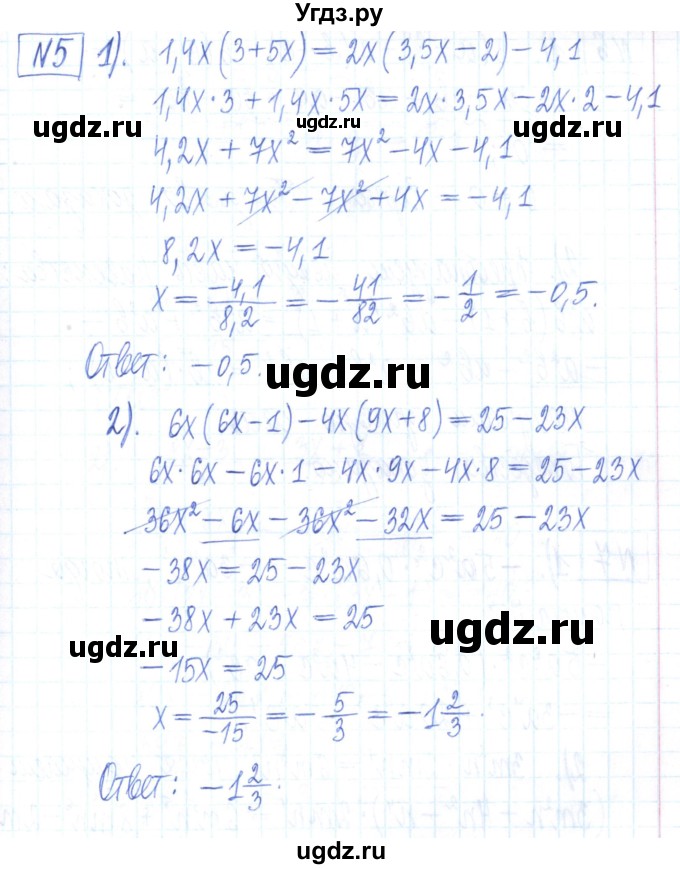 Угдз.ру
№5 1). 1,4x(3+5x) = 2x(3,5x-2) - 4,1
1,4x·3 + 1,4x·5x = 2x·3,5x - 2x·2 - 4,1
ugdz.ru ugdz.ru
4,2x + 7x² = 7x² - 4x - 4,1
ugdz.ru
4,2x + 7x² - 7x² + 4x = -4,1
8,2x = -4,1
x = -4,1/8,2 = -41/82 = -1/2 = -0,5.
Ответ: -0,5.
ugdz.ru
2). 6x(6x-1) - 4x(9x+8) = 25 - 23x
6x·6x - 6x·1 - 4x·9x - 4x·8 = 25 - 23x
36x² - 6x - 36x² - 32x = 25 - 23x
ugdz.ru ugdz.ru
-38x = 25 - 23x
-38x + 23x = 25
ugdz.ru
ugdz.ru
-15x = 25
x = 25/-15 = -5/3 = -1 2/3.
Ответ: -1 2/3.
ugdz.ru ugdz.ru
ugdz.ru